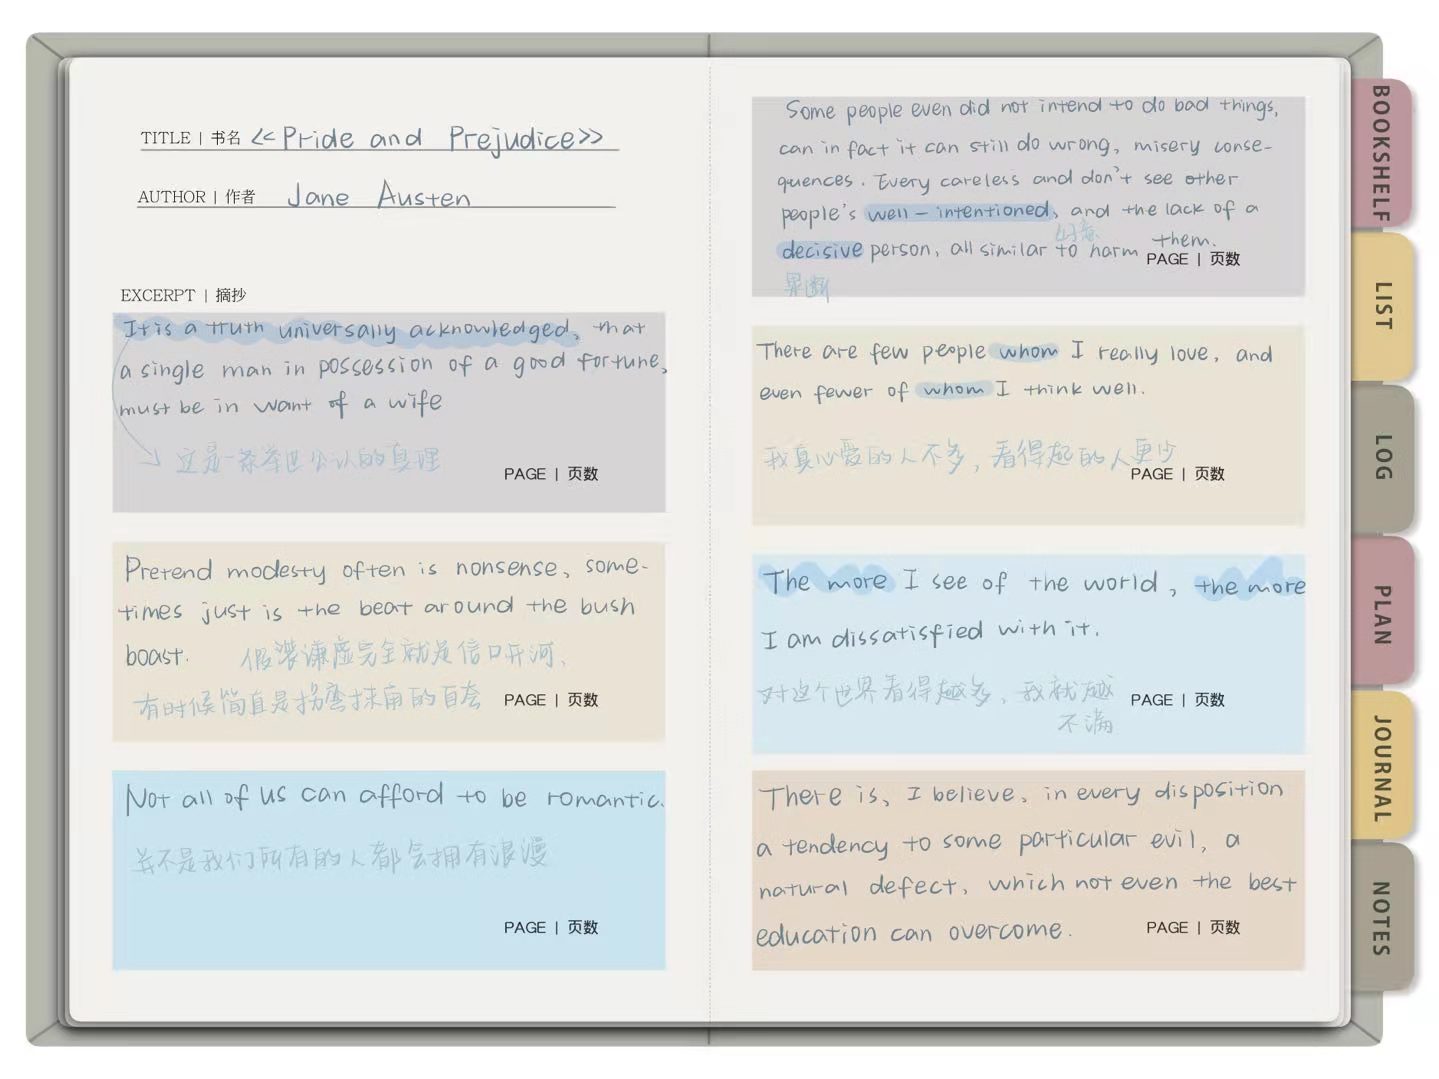 TITLE | 书名 <<Pride and Prejudice>>
AUTHOR | 作者 Jane Austen
EXCERPT | 摘抄
It is a truth universally acknowledged, that
a single man in possession of a good fortune,
must be in want of a wife
这是一条举世公认的真理
PAGE | 页数
Pretend modesty often is nonsense, some-
times just is the beat around the bush
boast. 假装谦虚完全就是信口开河、
有时候简直是拐弯抹角的自夸
PAGE | 页数
Not all of us can afford to be romantic.
并不是我们所有的人都会拥有浪漫
PAGE | 页数
Some people even did not intend to do bad things,
can in fact it can still do wrong, misery conse-
quences. Every careless and don't see other
people's well-intentioned, and the lack of a
好意
decisive person, all similar to harm them.
PAGE | 页数
果断
There are few people whom I really love, and
even fewer of whom I think well.
我真心爱的人不多，看得起的人更少
PAGE | 页数
The more I see of the world, the more
I am dissatisfied with it.
对这个世界看得越多，我就越
不满
PAGE | 页数
There is, I believe, in every disposition
a tendency to some particular evil, a
natural defect, which not even the best
education can overcome.
PAGE | 页数
BOOKSHELF
LIST
LOG
PLAN
JOURNAL
NOTES